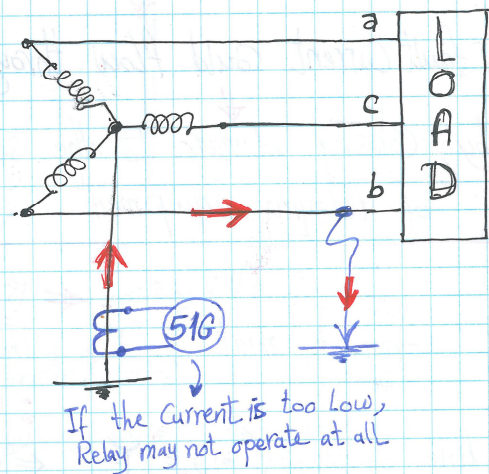 a
c
b
L
O
A
D
51G
If the Current is too Low,
Relay may not operate at all